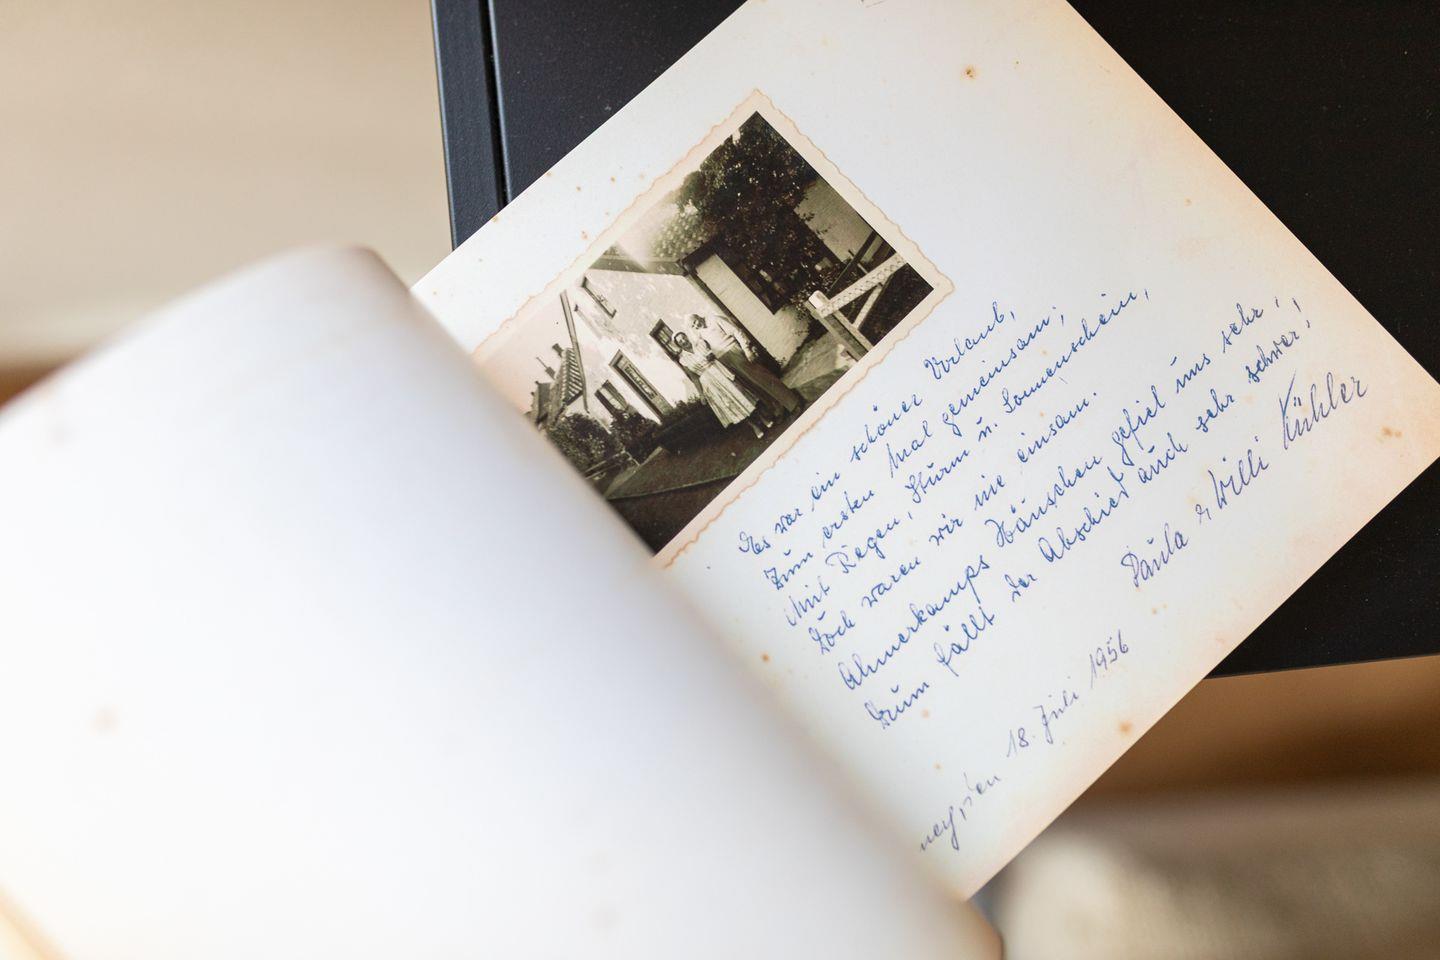 Es war ein schöner Urlaub,
zum ersten Mal gemeinsam;
Mit Regen, Sturm u. Sonnenschein,
Doch waren wir nie einsam.
Ahmerkamps Häuschen gefiel uns sehr;
Drum fällt der Abschied auch sehr schwer!
Paula & Willi Kühler
ney, den 18. Juli 1956